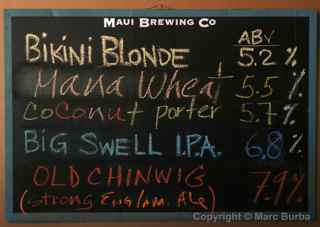 MAUI BREWING CO
ABV
BIKINI BLONDE 5.2%
Mana Wheat 5.5%
CoConut porter 5.7%
BiG SWELL I.P.A. 6.8%
OLD CHINWIG 7.9%
(strong Ale)
Copyright © Marc Burba